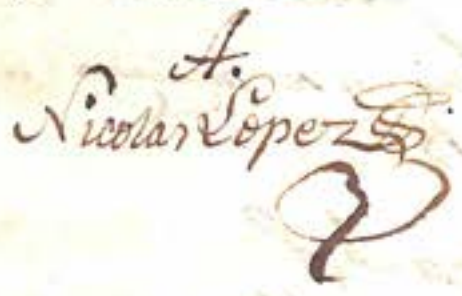 A.
Nicolas Lopez